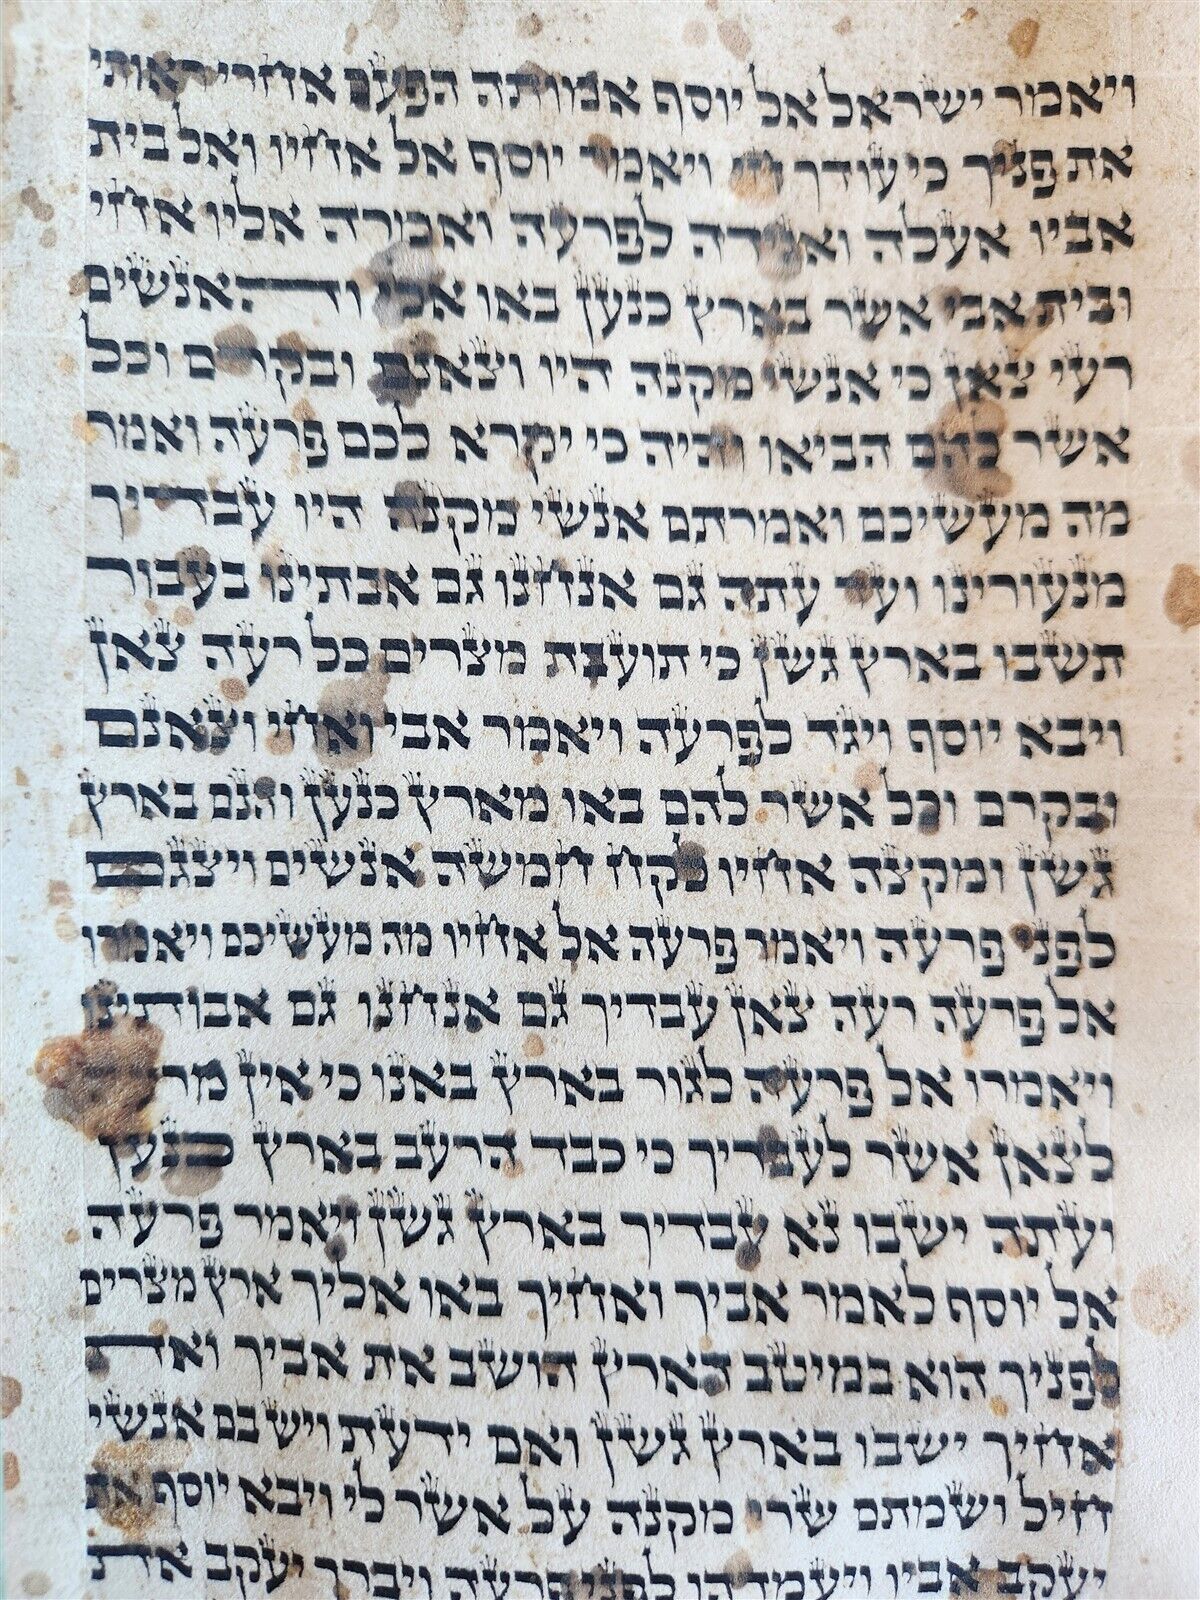 ויאמר ישראל אל יוסף אמותה הפעם אחרי ראותי
את פניך כי עודך חי ויאמר יוסף אל אחיו ואל בית
אביו אעלה ואגידה לפרעה ואמרה אליו אחי
ובית אבי אשר בארץ כנען באו אלי והאנשים
רעי צאן כי אנשי מקנה היו וצאנם ובקרם וכל
אשר להם הביאו והיה כי יקרא לכם פרעה ואמר
מה מעשיכם ואמרתם אנשי מקנה היו עבדיך
מנעורינו ועד עתה גם אנחנו גם אבתינו בעבור
תשבו בארץ גשן כי תועבת מצרים כל רעה צאן
ויבא יוסף ויגד לפרעה ויאמר אבי ואחי וצאנם
ובקרם וכל אשר להם באו מארץ כנען והנם בארץ
גשן ומקצה אחיו לקח חמשה אנשים ויצגם
לפני פרעה ויאמר פרעה אל אחיו מה מעשיכם ויאמרו
אל פרעה רעה צאן עבדיך גם אנחנו גם אבותינו
ויאמרו אל פרעה לגור בארץ באנו כי אין
לצאן אשר לעבדיך כי כבד הרעב בארץ כנען
ועתה ישבו נא עבדיך בארץ גשן ויאמר פרעה
אל יוסף לאמר אביך ואחיך באו אליך ארץ מצרים
לפניך הוא במיטב הארץ הושב את אביך ואת
אחיך ישבו בארץ גשן ואם ידעת ויש בם אנשי
חיל ושמתם שרי מקנה על אשר לי ויבא יוסף את
יעקב אביו ויעמדהו לפני פרעה ויברך יעקב את